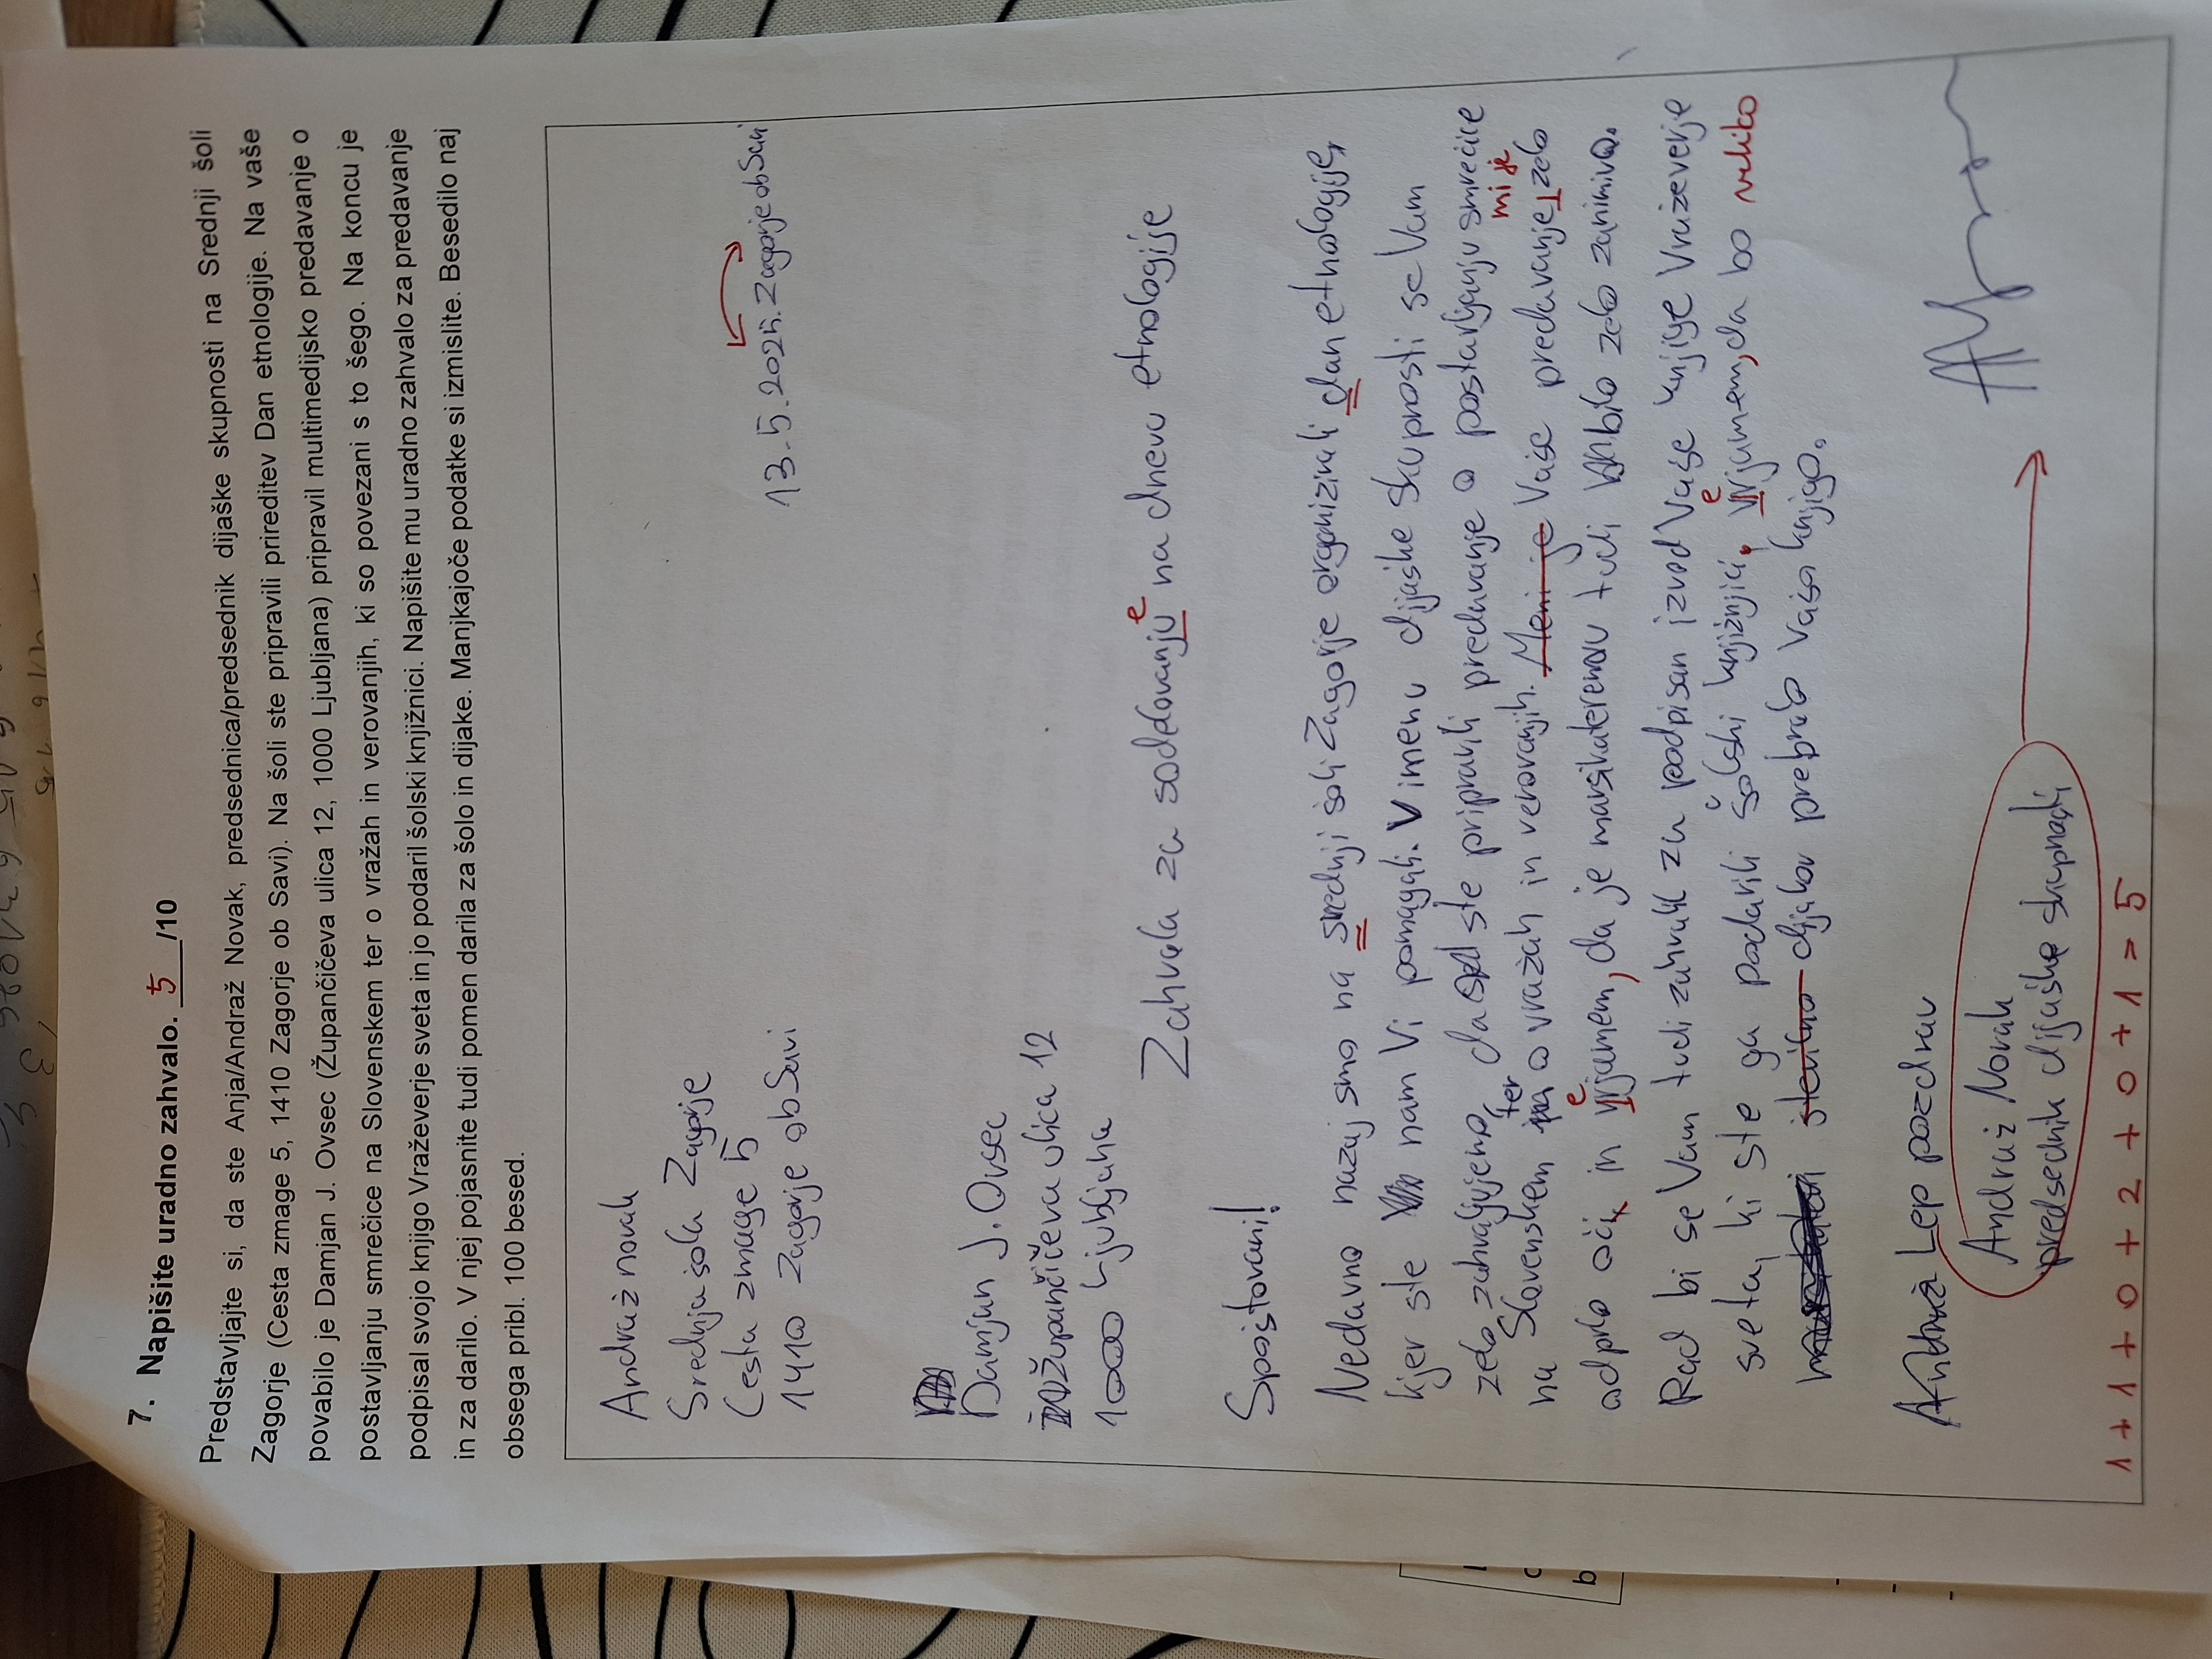 7. Napišite uradno zahvalo. 5 /10
Predstavljajte si, da ste Anja/Andraž Novak, predsednica/predsednik dijaške skupnosti na Srednji šoli
Zagorje (Cesta zmage 5, 1410 Zagorje ob Savi). Na šoli ste pripravili prireditev Dan etnologije. Na vaše
povabilo je Damjan J. Ovsec (Župančičeva ulica 12, 1000 Ljubljana) pripravil multimedijsko predavanje o
postavljanju smrečice na Slovenskem ter o vražah in verovanjih, ki so povezani s to šego. Na koncu je
podpisal svojo knjigo Vraževerje sveta in jo podaril šolski knjižnici. Napišite mu uradno zahvalo za predavanje
in za darilo. V njej pojasnite tudi pomen darila za šolo in dijake. Manjkajoče podatke si izmislite. Besedilo naj
obsega pribl. 100 besed.
Andraž novak
Srednja šola Zagorje
Cesta zmage 5
1410 Zagorje ob Savi
13.5.2025. Zagorje ob Savi
Damjan J. Ovsec
Župančičeva ulica 12
1000 Ljubljana
e
Zahvala za sodelovanju na dnevu etnologije
Spoštovani!
Nedavno nazaj smo na srednji šoli Zagorje organizirali dan etnologije,
kjer ste nam Vi pomagali. V imenu dijaške skupnosti se Vam
zelo zahvaljujemo, da ste pripravili predavanje o postavljanju smrečice
ter mi je
na Slovenskem o vražah in verovanjih. Meni je Vaše predavanje zelo
e
odprlo oči in vrjamem, da je marsikateremu tudi bilo zelo zanimivo.
Rad bi se Vam tudi zahvalil za podpisan izvod Vaše knjige Vraževerje
e
sveta, ki ste ga podarili šolski knjižnjici. vrjamem, da bo veliko
številno dijakov prebralo Vašo knjigo.
Andraž Lep pozdrav
Andraž Novak
predsednik dijaške skupnosti
1 + 1 + 0 + 2 + 0 + 1 = 5